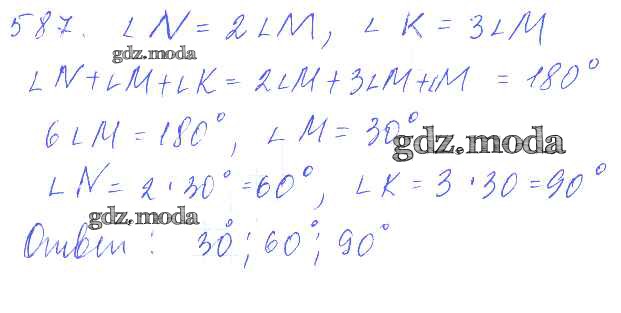 587. ∠N = 2∠M, ∠K = 3∠M
gdz.moda
∠N+∠M+∠K = 2∠M+3∠M+∠M = 180°
6∠M = 180°, ∠M = 30°
gdz.moda
∠N = 2·30° = 60°, ∠K = 3·30 = 90°
gdz.moda
Ответ: 30°; 60°; 90°